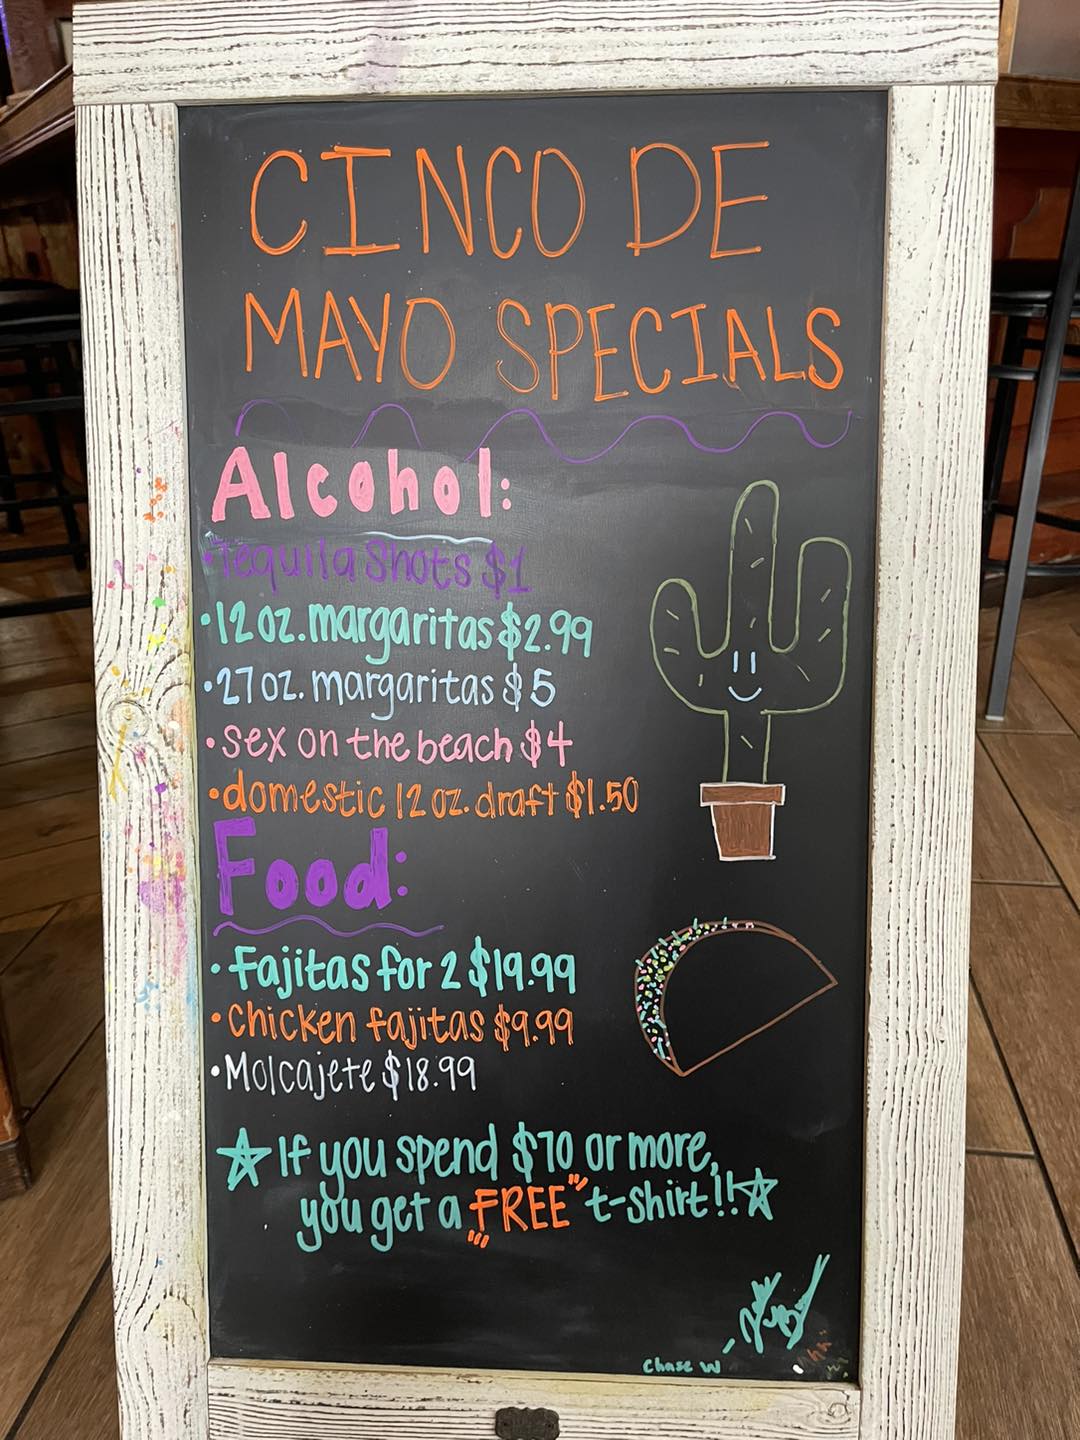 CINCO DE
MAYO SPECIALS
Alcohol:
•Tequila Shots $1
•12 oz. margaritas $2.99
•27 oz. margaritas $5
•sex on the beach $4
•domestic 12 oz. draft $1.50
Food:
•Fajitas for 2 $19.99
•Chicken fajitas $9.99
•Molcajete $18.99
☆ If you spend $70 or more,
you get a "FREE" t-shirt!!☆
Chase W